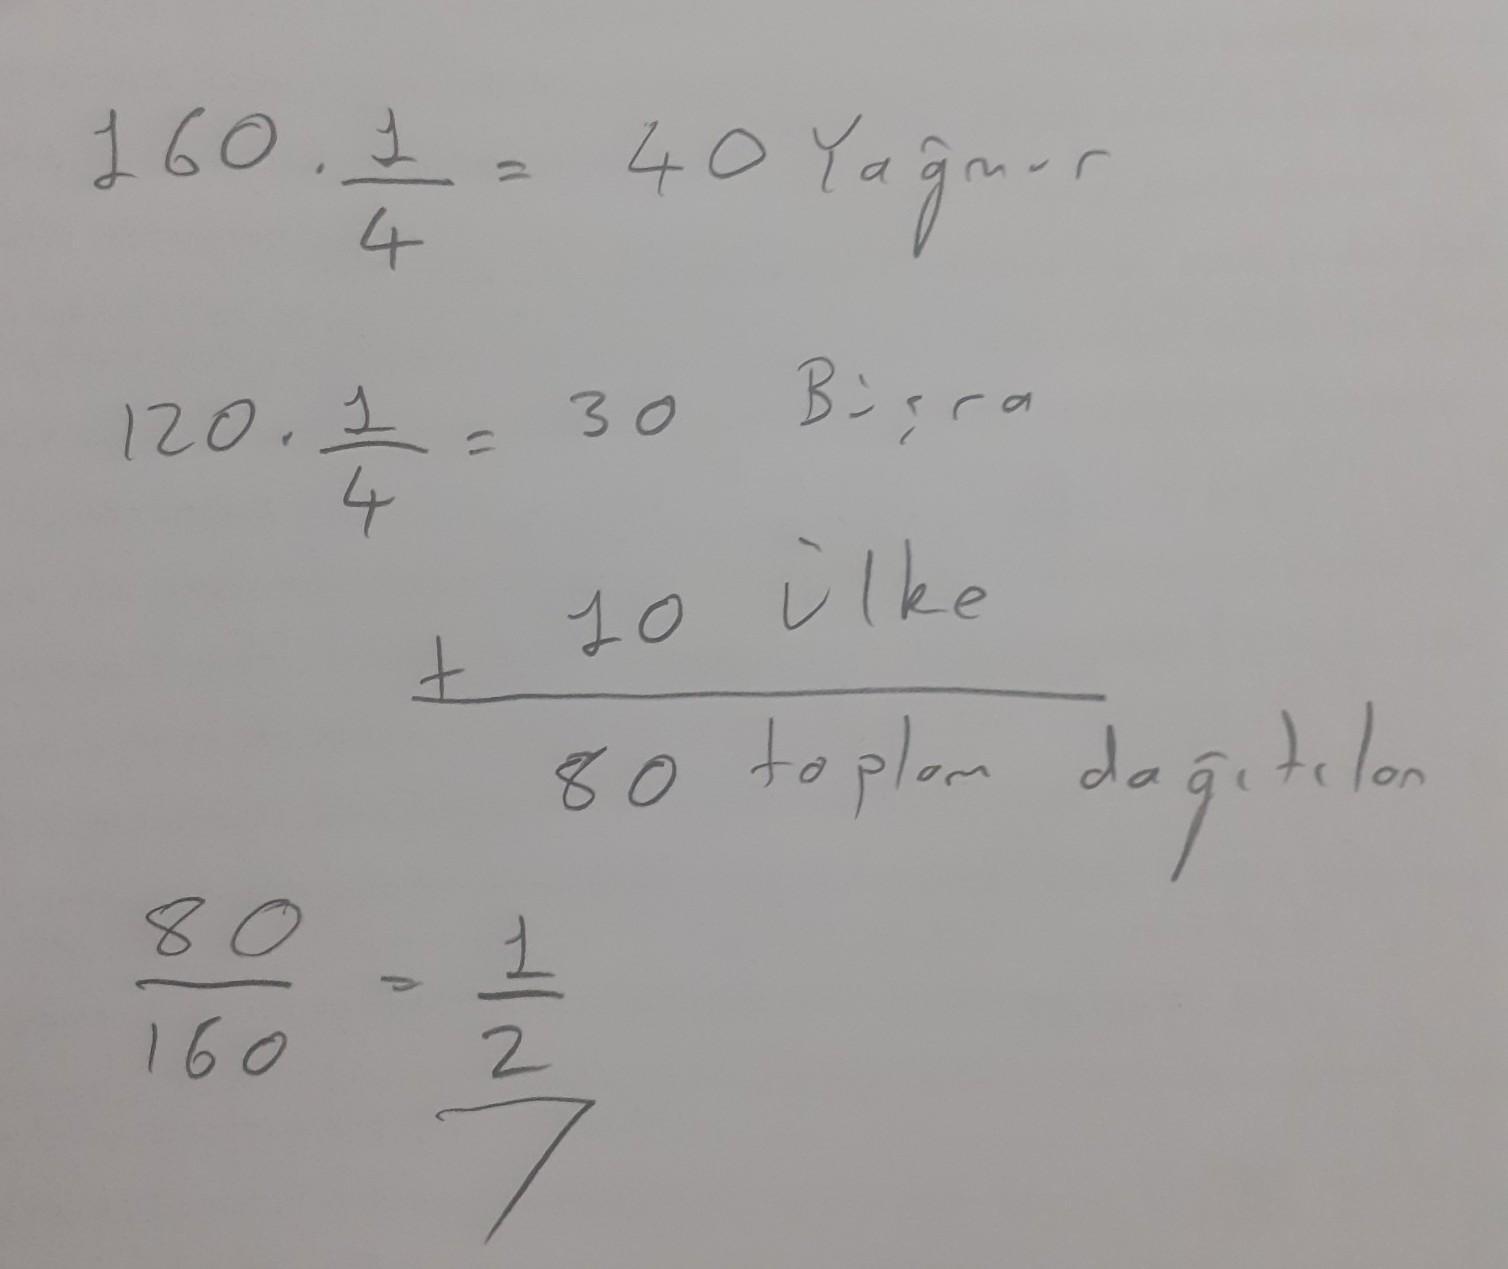 160 . 1/4 = 40 Yağmur
120 . 1/4 = 30 Büşra
+ 10 ülke
80 toplam dağıtılan
80/160 = 1/2